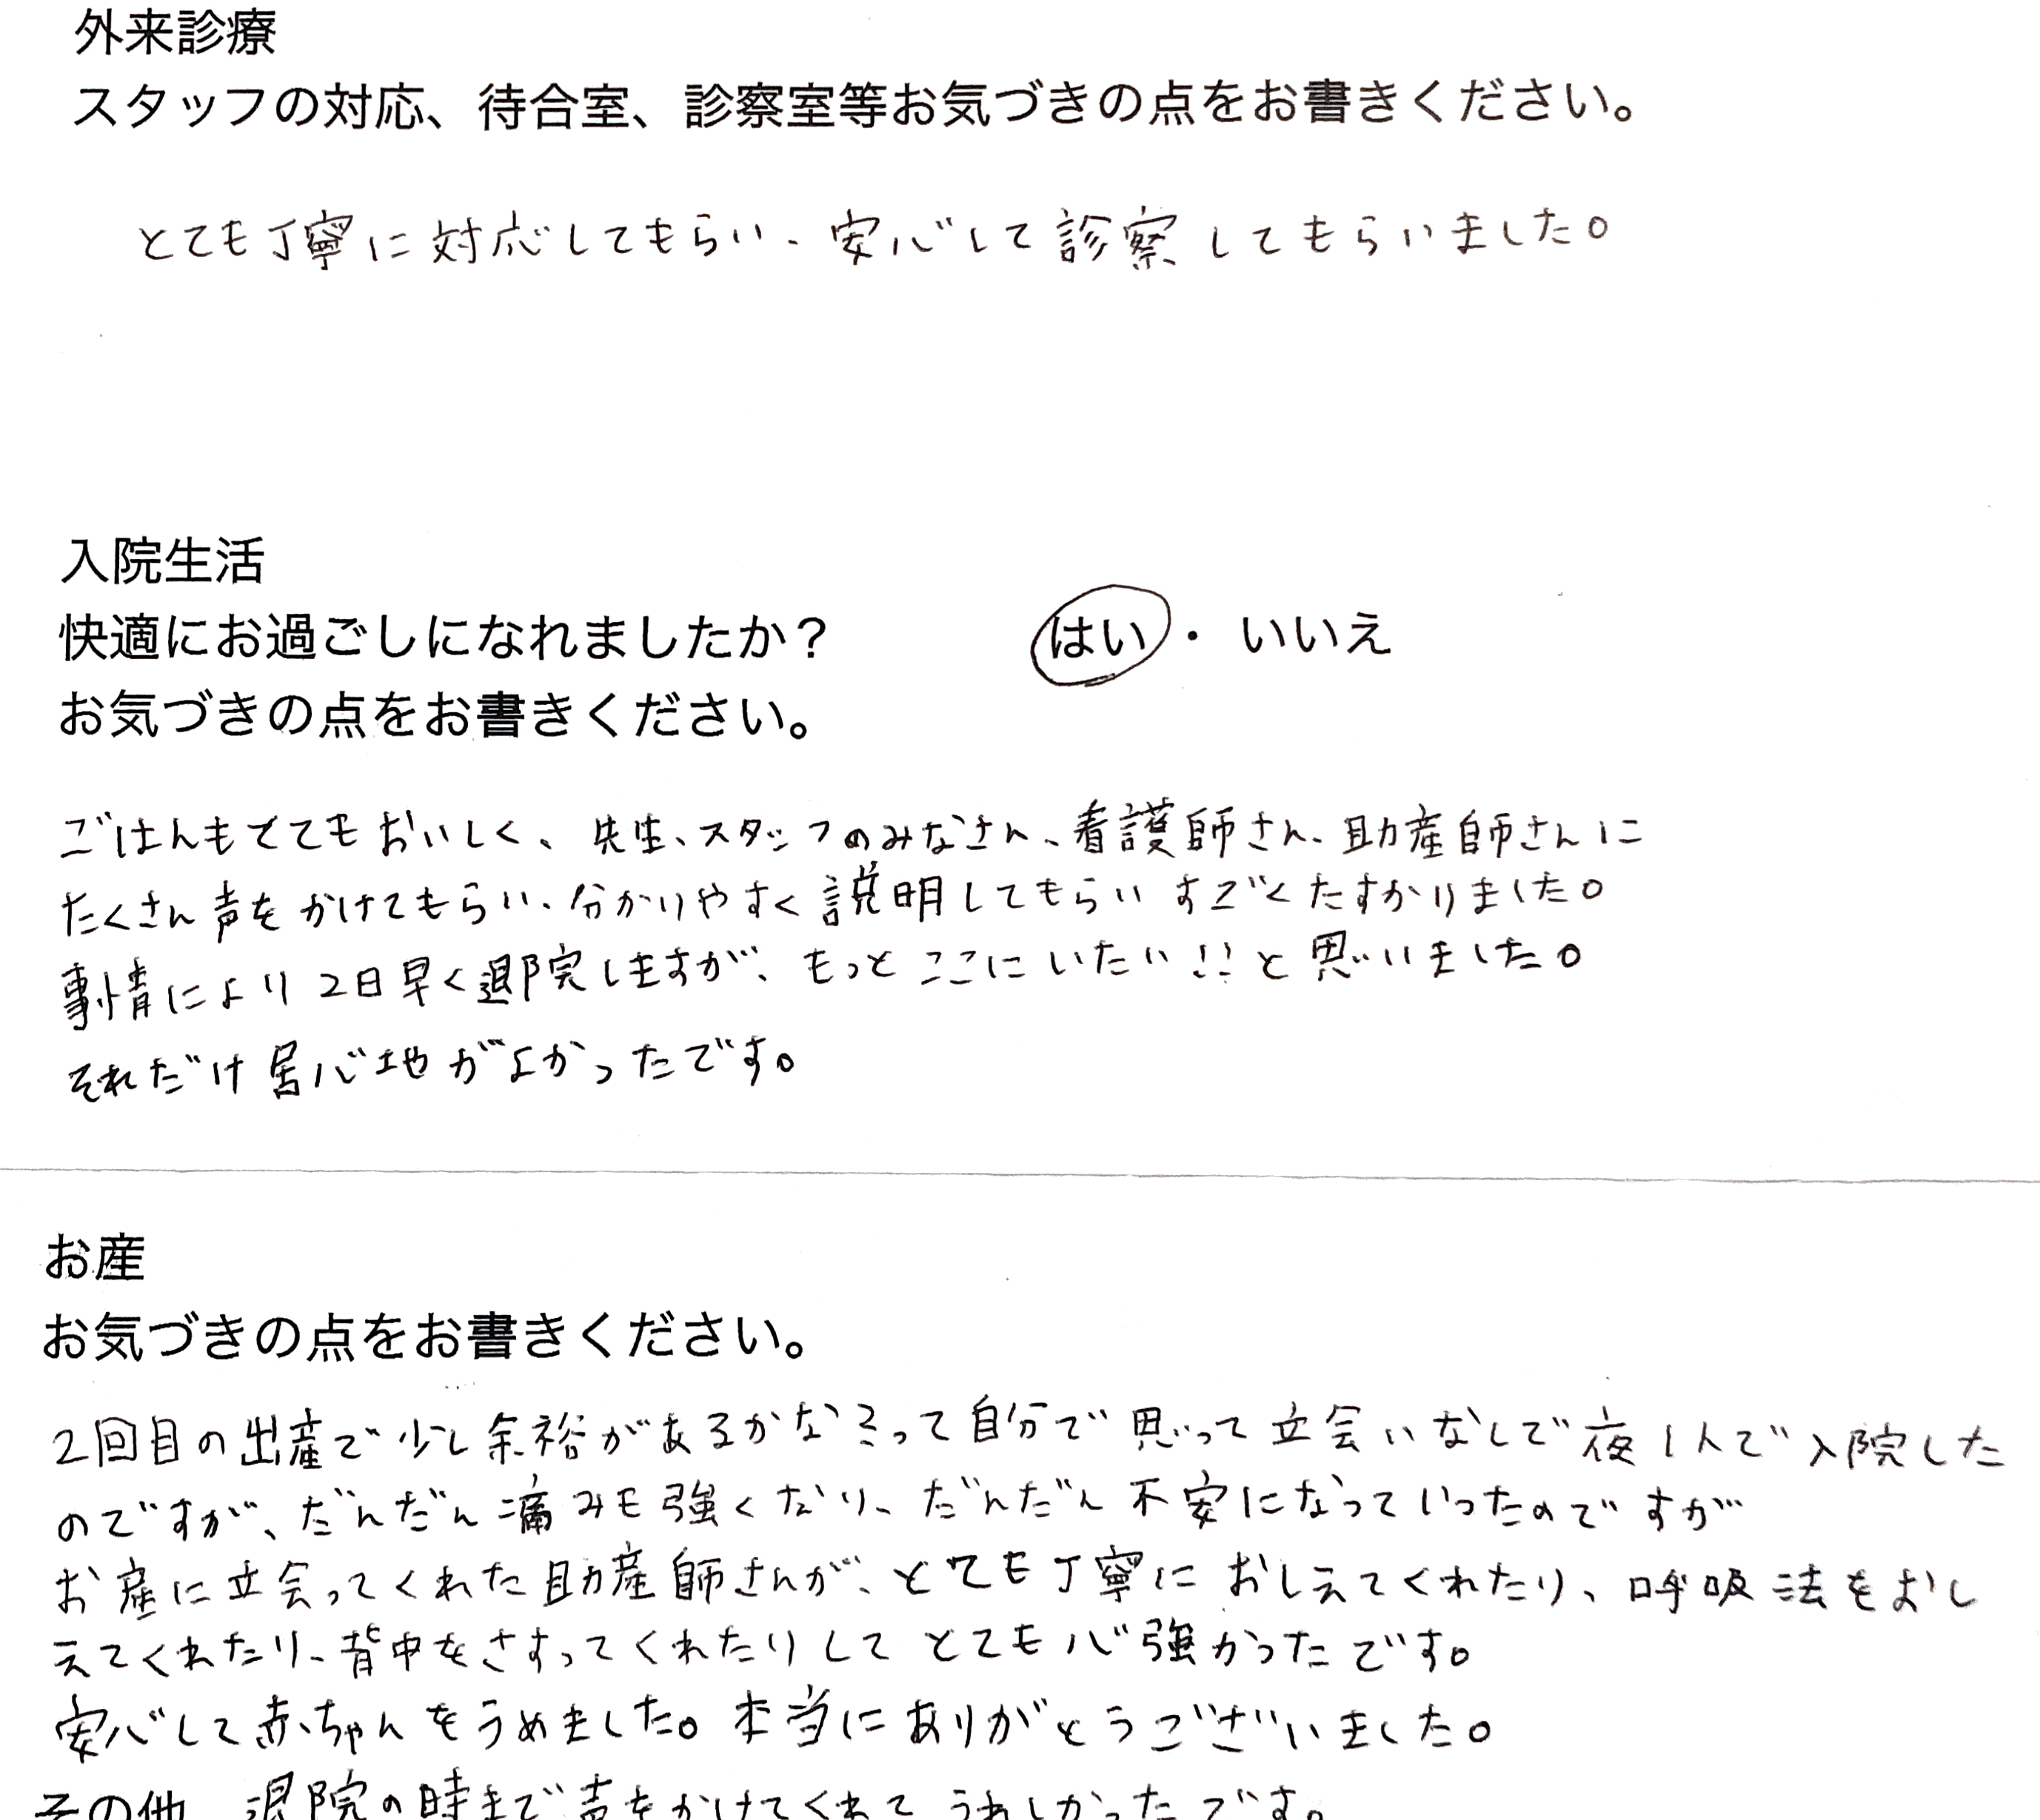 外来診療
スタッフの対応、待合室、診察室等お気づきの点をお書きください。
とても丁寧に対応してもらい、安心して診察してもらいました。
入院生活
快適にお過ごしになれましたか？ はい・いいえ
お気づきの点をお書きください。
ごはんもとてもおいしく、先生、スタッフのみなさん、看護師さん、助産師さんに
たくさん声をかけてもらい、分かりやすく説明してもらいすごくたすかりました。
事情により2日早く退院しますが、もっとここにいたい!!と思いました。
それだけ居心地がよかったです。
お産
お気づきの点をお書きください。
2回目の出産で少し余裕があるかなぁって自分で思って立会いなしで夜1人で入院した
のですが、だんだん痛みも強くなり、だんだん不安になっていったのですが
お産に立会ってくれた助産師さんが、とても丁寧におしえてくれたり、呼吸法をおし
えてくれたり、背中をさすってくれたりしてとても心強かったです。
安心して赤ちゃんをうめました。本当にありがとうございました。
その他 退院の時まで声をかけてくれて、うれしかったです。